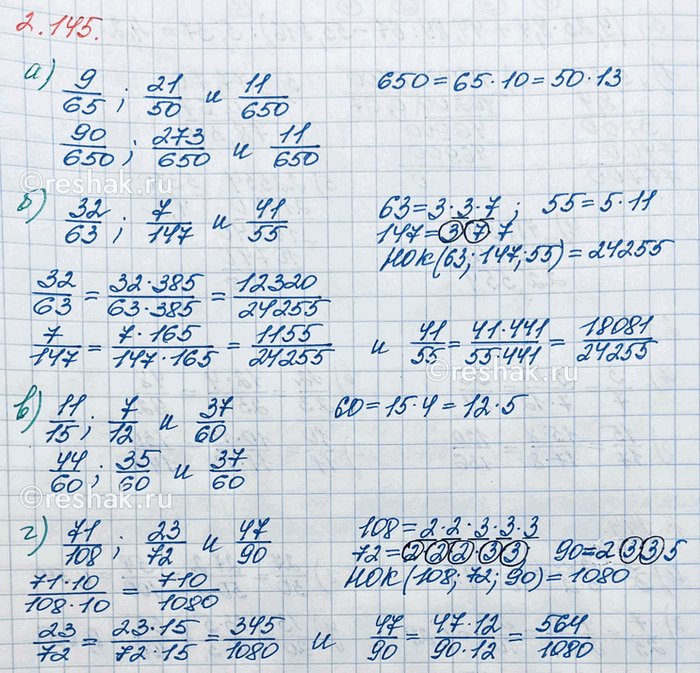 2.145.
а) 9/65 ; 21/50 и 11/650 650=65·10=50·13
90/650 ; 273/650 и 11/650
©reshak.ru ©reshak.ru
б) 32/63 ; 7/147 и 41/55 63=3·3·7 ; 55=5·11
147=3 7 7
НОК(63; 147; 55)=24255
32/63 = 32·385/63·385 = 12320/24255
7/147 = 7·165/147·165 = 1155/24255 и 41/55 = 41·441/55·441 = 18081/24255
©reshak.ru ©reshak.ru
в) 11/15 ; 7/12 и 37/60 60=15·4=12·5
44/60 ; 35/60 и 37/60
©reshak.ru ©reshak.ru
г) 71/108 ; 23/72 и 47/90 108=2·2·3·3·3
72=2 2 2·3 3 90=2 3 3 5
71·10/108·10 = 710/1080 НОК(108; 72; 90)=1080
23/72 = 23·15/72·15 = 345/1080 и 47/90 = 47·12/90·12 = 564/1080